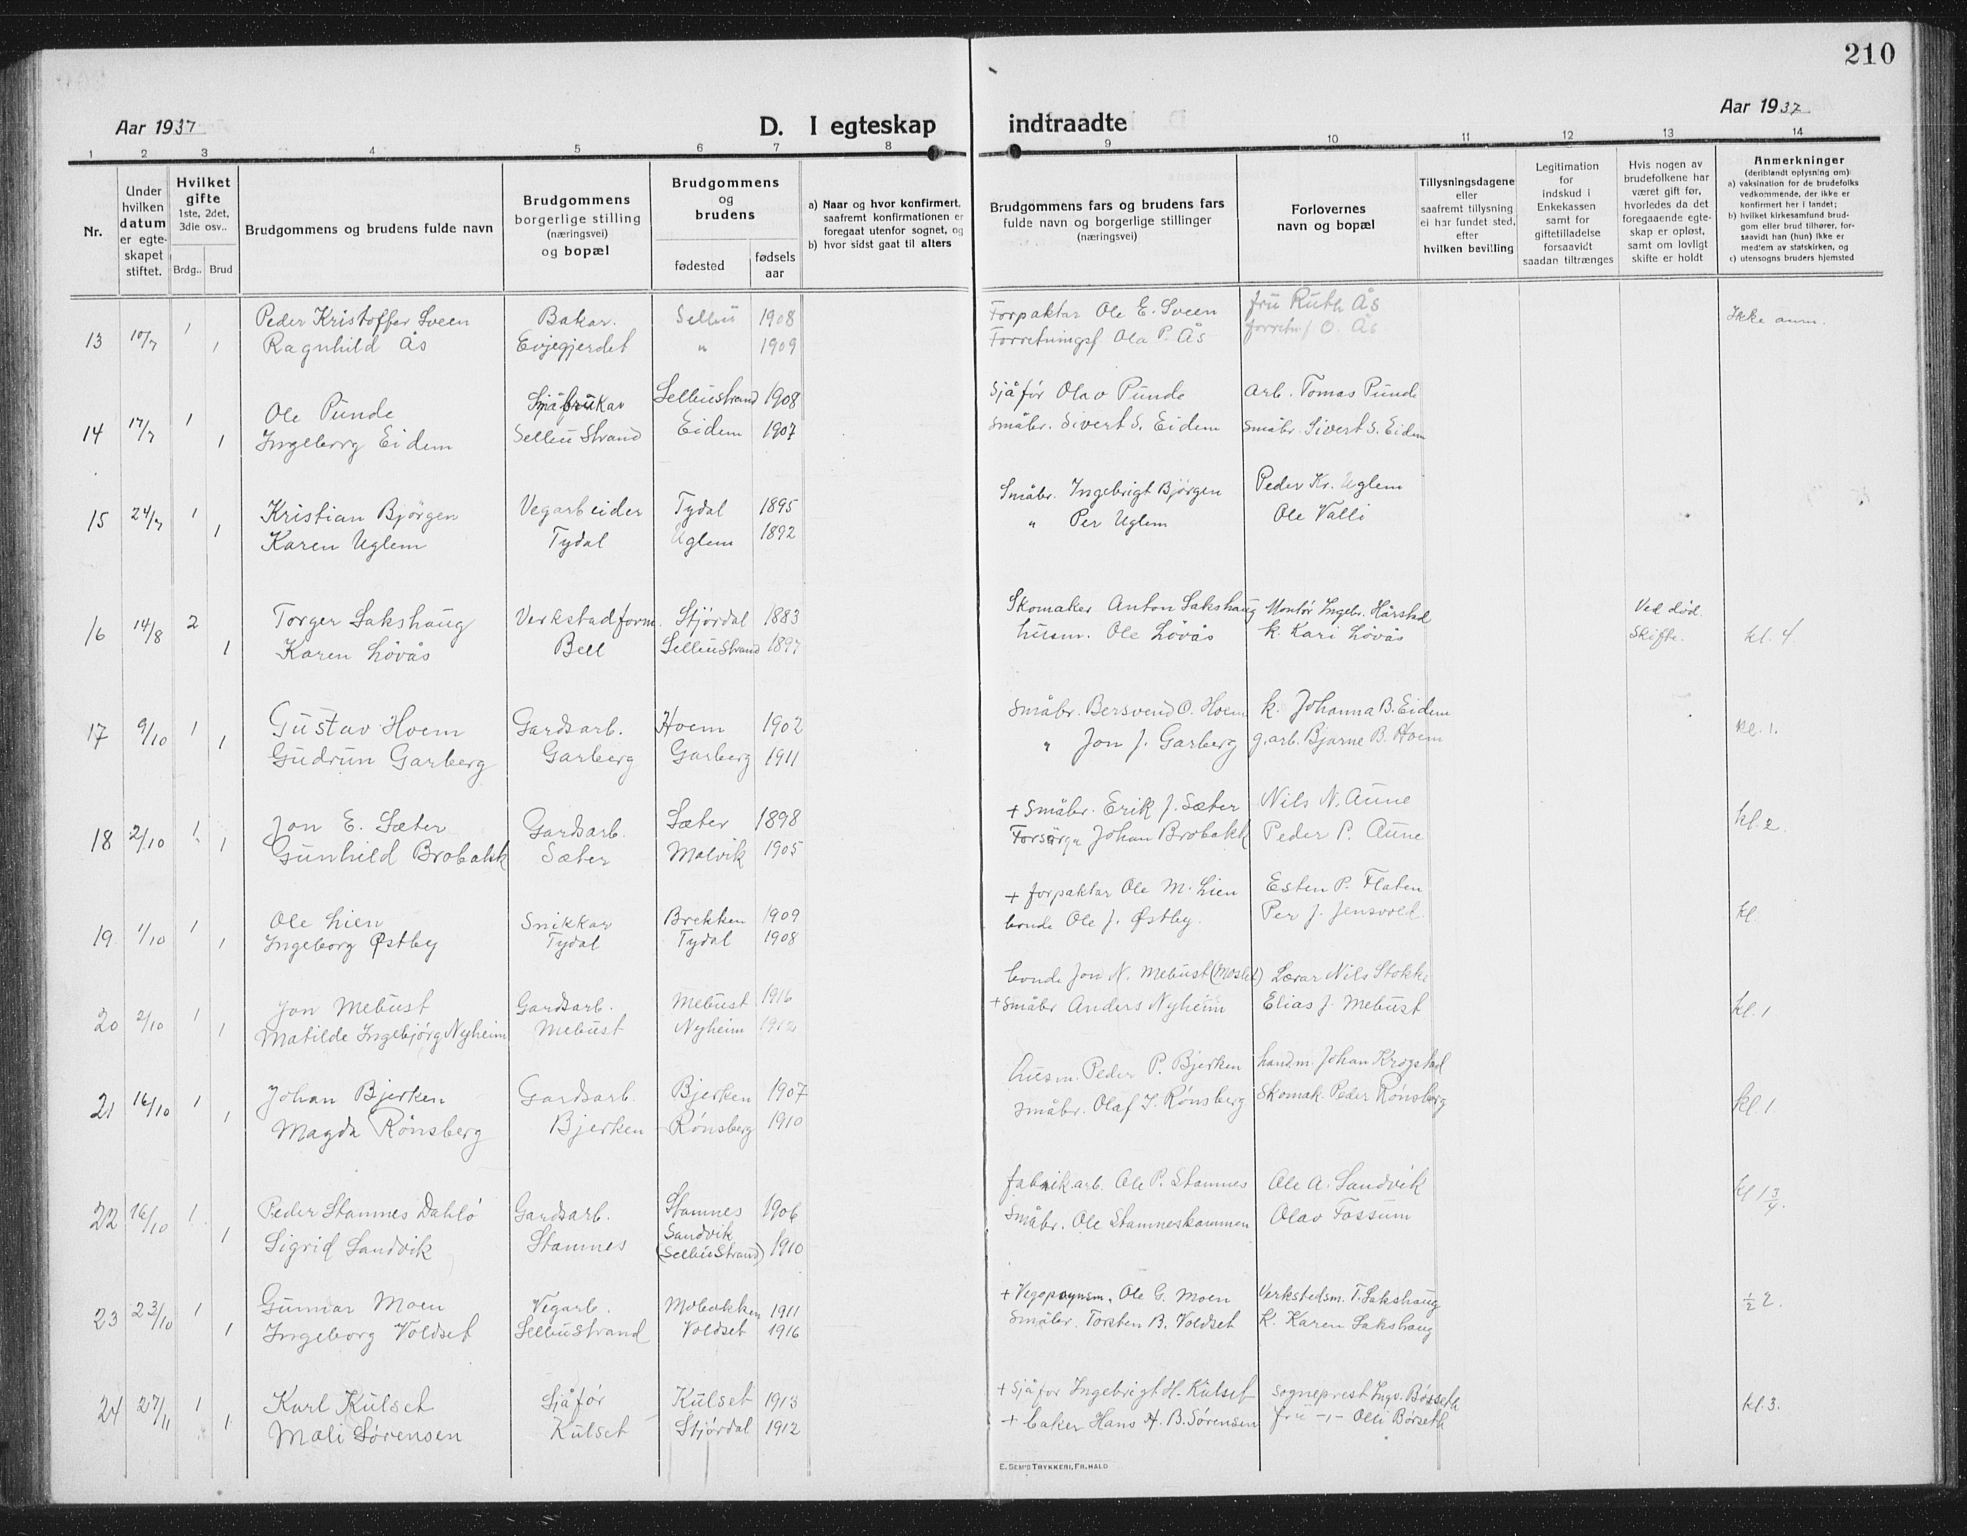 210
Aar 1937
D. I egteskap indtraadte
Aar 1937
1 2 3 4 5 6 7 8 9 10 11 12 13 14
Nr.
Under hvilken datum er egteskapet stiftet.
Hvilket gifte 1ste, 2det, 3die osv..
Brdg.. Brud
Brudgommens og brudens fulde navn
Brudgommens borgerlige stilling (næringsvei) og bopæl
Brudgommens og brudens
fødested
fødsels aar
a) Naar og hvor konfirmert, saafremt konfirmationen er foregaat utenfor sognet, og
b) hvor sidst gaat til alters
Brudgommens fars og brudens fars fulde navn og borgerlige stillinger (næringsvei)
Forlovernes navn og bopæl
Tillysningsdagene eller saafremt tillysning ei har fundet sted, efter hvilken bevilling
Legitimation for indskud i Enkekassen samt for giftetilladelse forsaavidt saadan tiltrænges
Hvis nogen av brudefolkene har været gift før, hvorledes da det foregaaende egteskap er opløst, samt om lovligt skifte er holdt
Anmerkninger
(deriblandt oplysning om)
a) vaksination for de brudefolks vedkommende, der ikke er konfirmert her i landet;
b) hvilket kirkesamfund brudgom eller brud tilhører, forsaavidt han (hun) ikke er medlem av statskirken, og
c) utensogns bruders hjemsted
13 10/7 1 Peder Kristoffer Sveen Bakar. Selbu 1908 Forpaktar Ole E. Sveen fru Ruth Ås Ikke anm.
1 Ragnhild Ås Evjegjerdet " 1909 Forretningsf. Ola P. Ås forretn.f O. Ås
14 17/7 1 Ole Punde Småbrukar Selbustrand 1908 Sjåfør Olav Punde Arb. Tomas Punde
1 Ingeborg Eidem Selbustrand Eidem 1907 Småbr. Sivert S. Eidem Småbr. Sivert S. Eidem
15 24/7 1 Kristian Bjørgen Vegarbeider Tydal 1895 Småbr. Ingebrigt Bjørgen Peder Kr. Uglem
1 Karen Uglem Tydal Uglem 1892 " Per Uglem Ole Valli
16 14/8 2 Torger Sakshaug Verkstadform. Stjørdal 1883 Skomaker Anton Sakshaug Montør Ingebr. Hårstad Ved død.
1 Karen Løvås Bell Selbustrand 1897 husm. Ole Løvås k. Kari Løvås Skifte. kl. 4
17 9/10 1 Gustav Hoem Gardsarb. Hoem 1902 Småbr. Bersvend O. Hoem k. Johanna B. Eidem kl. 1.
1 Gudrun Garberg Garberg Garberg 1911 " Jon J. Garberg g.arb. Bjarne B. Hoem
18 2/10 1 Jon E. Sæter Gardsarb. Sæter 1898 + Småbr. Erik J. Sæter Nils N. Aune kl. 2.
1 Gunhild Brobakk Sæter Malvik 1905 Johan Brobakk Peder P. Aune
19 1/10 1 Ole Lien Snikkar Brekken 1909 + forpaktar Ole M. Lien Esten P. Flaten kl.
1 Ingeborg Østby Tydal Tydal 1908 bonde Ole J. Østby. Per J. Jensvold.
20 2/10 1 Jon Mebust Gardsarb. Mebust 1916 bonde Jon N. Mebust (Moslet) Lærar Nils Stokke kl. 1
1 Matilde Ingebjørg Nyheim Mebust Nyheim 1912 + Småbr Anders Nyheim Elias J. Mebust
21 16/10 1 Johan Bjerken Gardsarb. Bjerken 1907 husm. Peder P. Bjerken handm. Johan Krogstad kl. 1.
1 Magda Rønsberg Bjerken Rønsberg 1910 Småbr. Olaf I. Rønsberg Skomak. Peder Rønsberg
22 16/10 1 Peder Stamnes Dahlø Gardsarb. Stamnes 1906 fabrikarb. Ole P. Stamnes Ole A. Sandvik kl 1 3/4.
1 Sigrid Sandvik Stamnes Sandvik (Selbustrand) 1910 Småbr. Ole Stamneskammen Olav Fossum
23 23/10 1 Gunnar Moen Vegarb. Mobakken 1911 + Ole G. Moen Verkstedsm. T. Sakshaug 1/2 2.
1 Ingeborg Voldset Selbustrand Voldset 1916 Småbr. Torsten B. Voldset K. Karen Sakshaug
24 27/11 1 Karl Kulset Sjåfør Kulset 1913 + Sjåfør Ingebrigt H. Kulset Sogneprest Ingv. Børseth kl. 3.
1 Mali Sørensen Kulset Stjørdal 1912 + baker Hans H. B. Sørensen fru -,- Olli Børseth
E. SEM'S TRYKKERI, FR.HALD